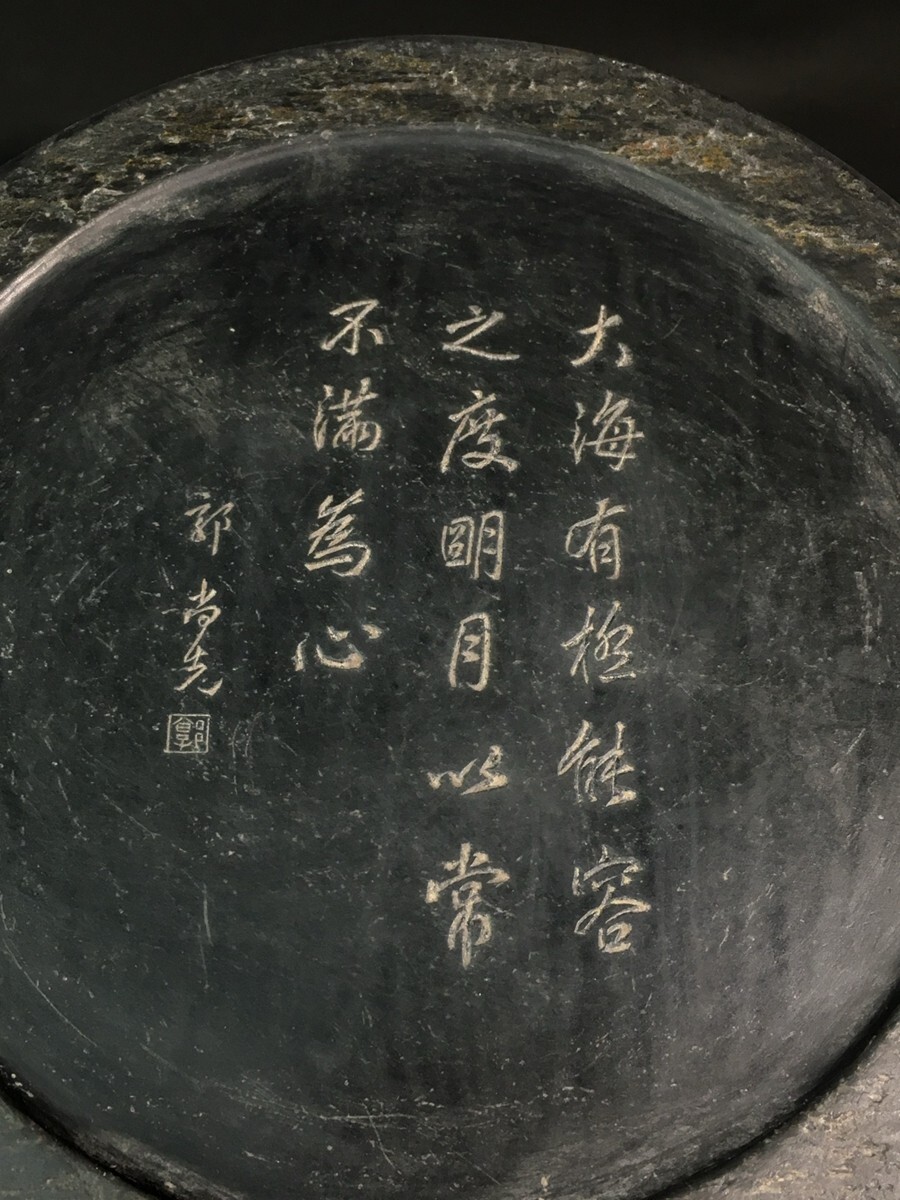 大海有極能容
之度明月以常
不滿為心
郭尚先
郭